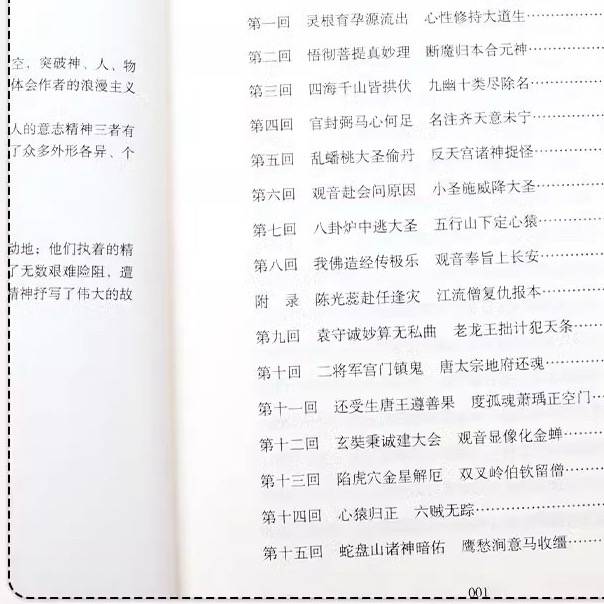 空，突破神、人、物
体会作者的浪漫主义
人的意志精神三者有
了众多外形各异、个
动地；他们执着的精
了无数艰难险阻，遭
精神抒写了伟大的故
第一回 灵根育孕源流出 心性修持大道生
第二回 悟彻菩提真妙理 断魔归本合元神
第三回 四海千山皆拱伏 九幽十类尽除名
第四回 官封弼马心何足 名注齐天意未宁
第五回 乱蟠桃大圣偷丹 反天宫诸神捉怪
第六回 观音赴会问原因 小圣施威降大圣
第七回 八卦炉中逃大圣 五行山下定心猿
第八回 我佛造经传极乐 观音奉旨上长安
附 录 陈光蕊赴任逢灾 江流僧复仇报本
第九回 袁守诚妙算无私曲 老龙王拙计犯天条
第十回 二将军宫门镇鬼 唐太宗地府还魂
第十一回 还受生唐王遵善果 度孤魂萧瑀正空门
第十二回 玄奘秉诚建大会 观音显像化金蝉
第十三回 陷虎穴金星解厄 双叉岭伯钦留僧
第十四回 心猿归正 六贼无踪
第十五回 蛇盘山诸神暗佑 鹰愁涧意马收缰
001